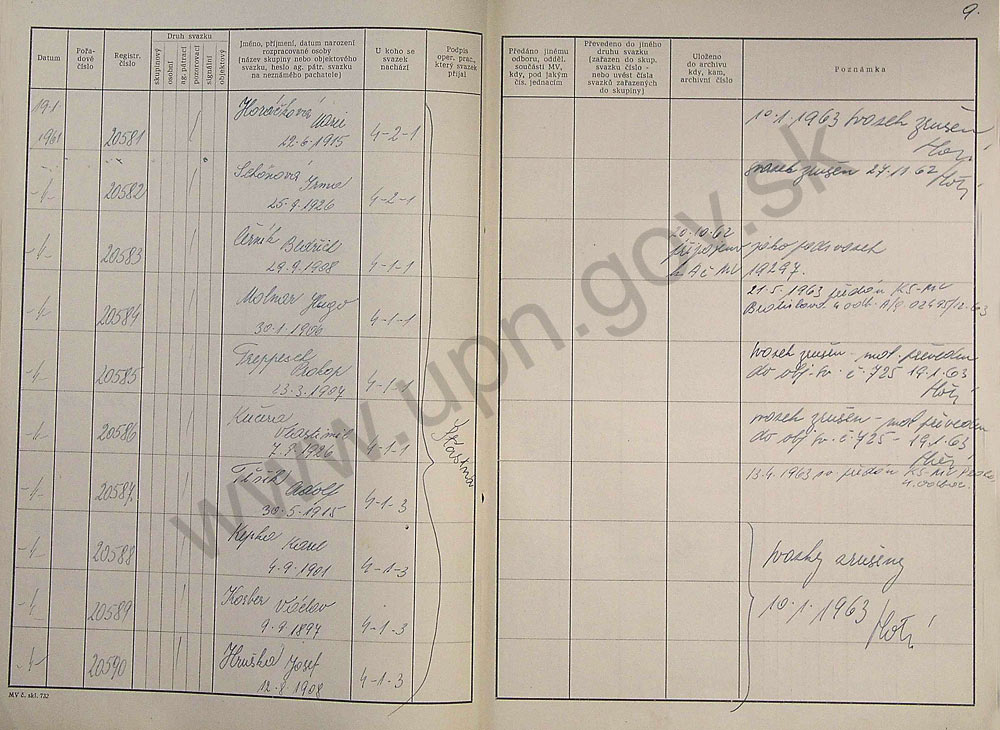 9.
Datum
Pořa-
dové
číslo
Registr.
číslo
Druh svazku
skupinový
osobní
ag.-pátrací
pozorovací
signální
objektový
Jméno, příjmení, datum narození
rozpracované osoby
(název skupiny nebo objektového
svazku, heslo ag. pátr. svazku
na neznámého pachatele)
U koho se
svazek
nachází
Podpis
oper. prac.,
který svazek
přijal
Předáno jinému
odboru, odděl.
součásti MV,
kdy, pod jakým
čís. jednacím
Převedeno do jiného
druhu svazku
(zařazen do skup.
svazku číslo -
nebo uvést čísla
svazků zařazených
do skupiny)
Uloženo
do archivu
kdy, kam,
archivní číslo
Poznámka
19.1
1961 20581 Horáčková
22.6.1915 4-2-1
10.1.1963 svazek zrušen
-"- 20582 Schönová Irma
25.9.1926 4-2-1
svazek zrušen 27.11.62
-"- 20583 Černík Bedřich
29.9.1908 4-1-1
20.10.62
připojeno jako podsvazek
k č MV 19297.
-"- 20584 Molnar Hugo
30.1.1906 4-1-1
21.5.1963 předán KS-MV
Bratislava 4 odb.
-"- 20585 Treppesch
Prokop
23.3.1907 4-1-1
svazek zrušen mat. převeden
do obj. sv. č. 725 19.1.63
-"- 20586 Kučera
Vlastimil
7.9.1926 4-1-1
svazek zrušen - mat převeden
do obj sv. č. 725 - 19.1.63
-"- 20587 Adolf
30.5.1915 4-1-3
13.4.1963 předán KS MV
4. odbor.
-"- 20588 Kepka Karel
4.9.1901 4-1-3
-"- 20589 Kosber Václav
9.9.1897 4-1-3
-"- 20590 Hruška Josef
12.8.1908 4-1-3
Svazky zrušeny
10.1.1963
MV č. skl. 732
www.upn.gov.sk